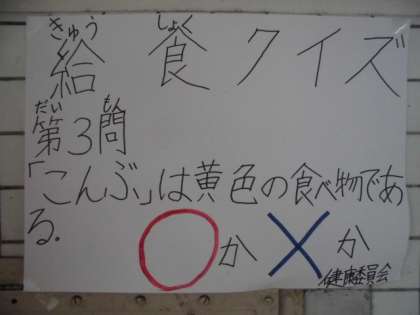 きゅう しょく
給食クイズ
だい もん
第3問
「こんぶ」は黄色の食べ物であ
る.
○か×か
健康委員会